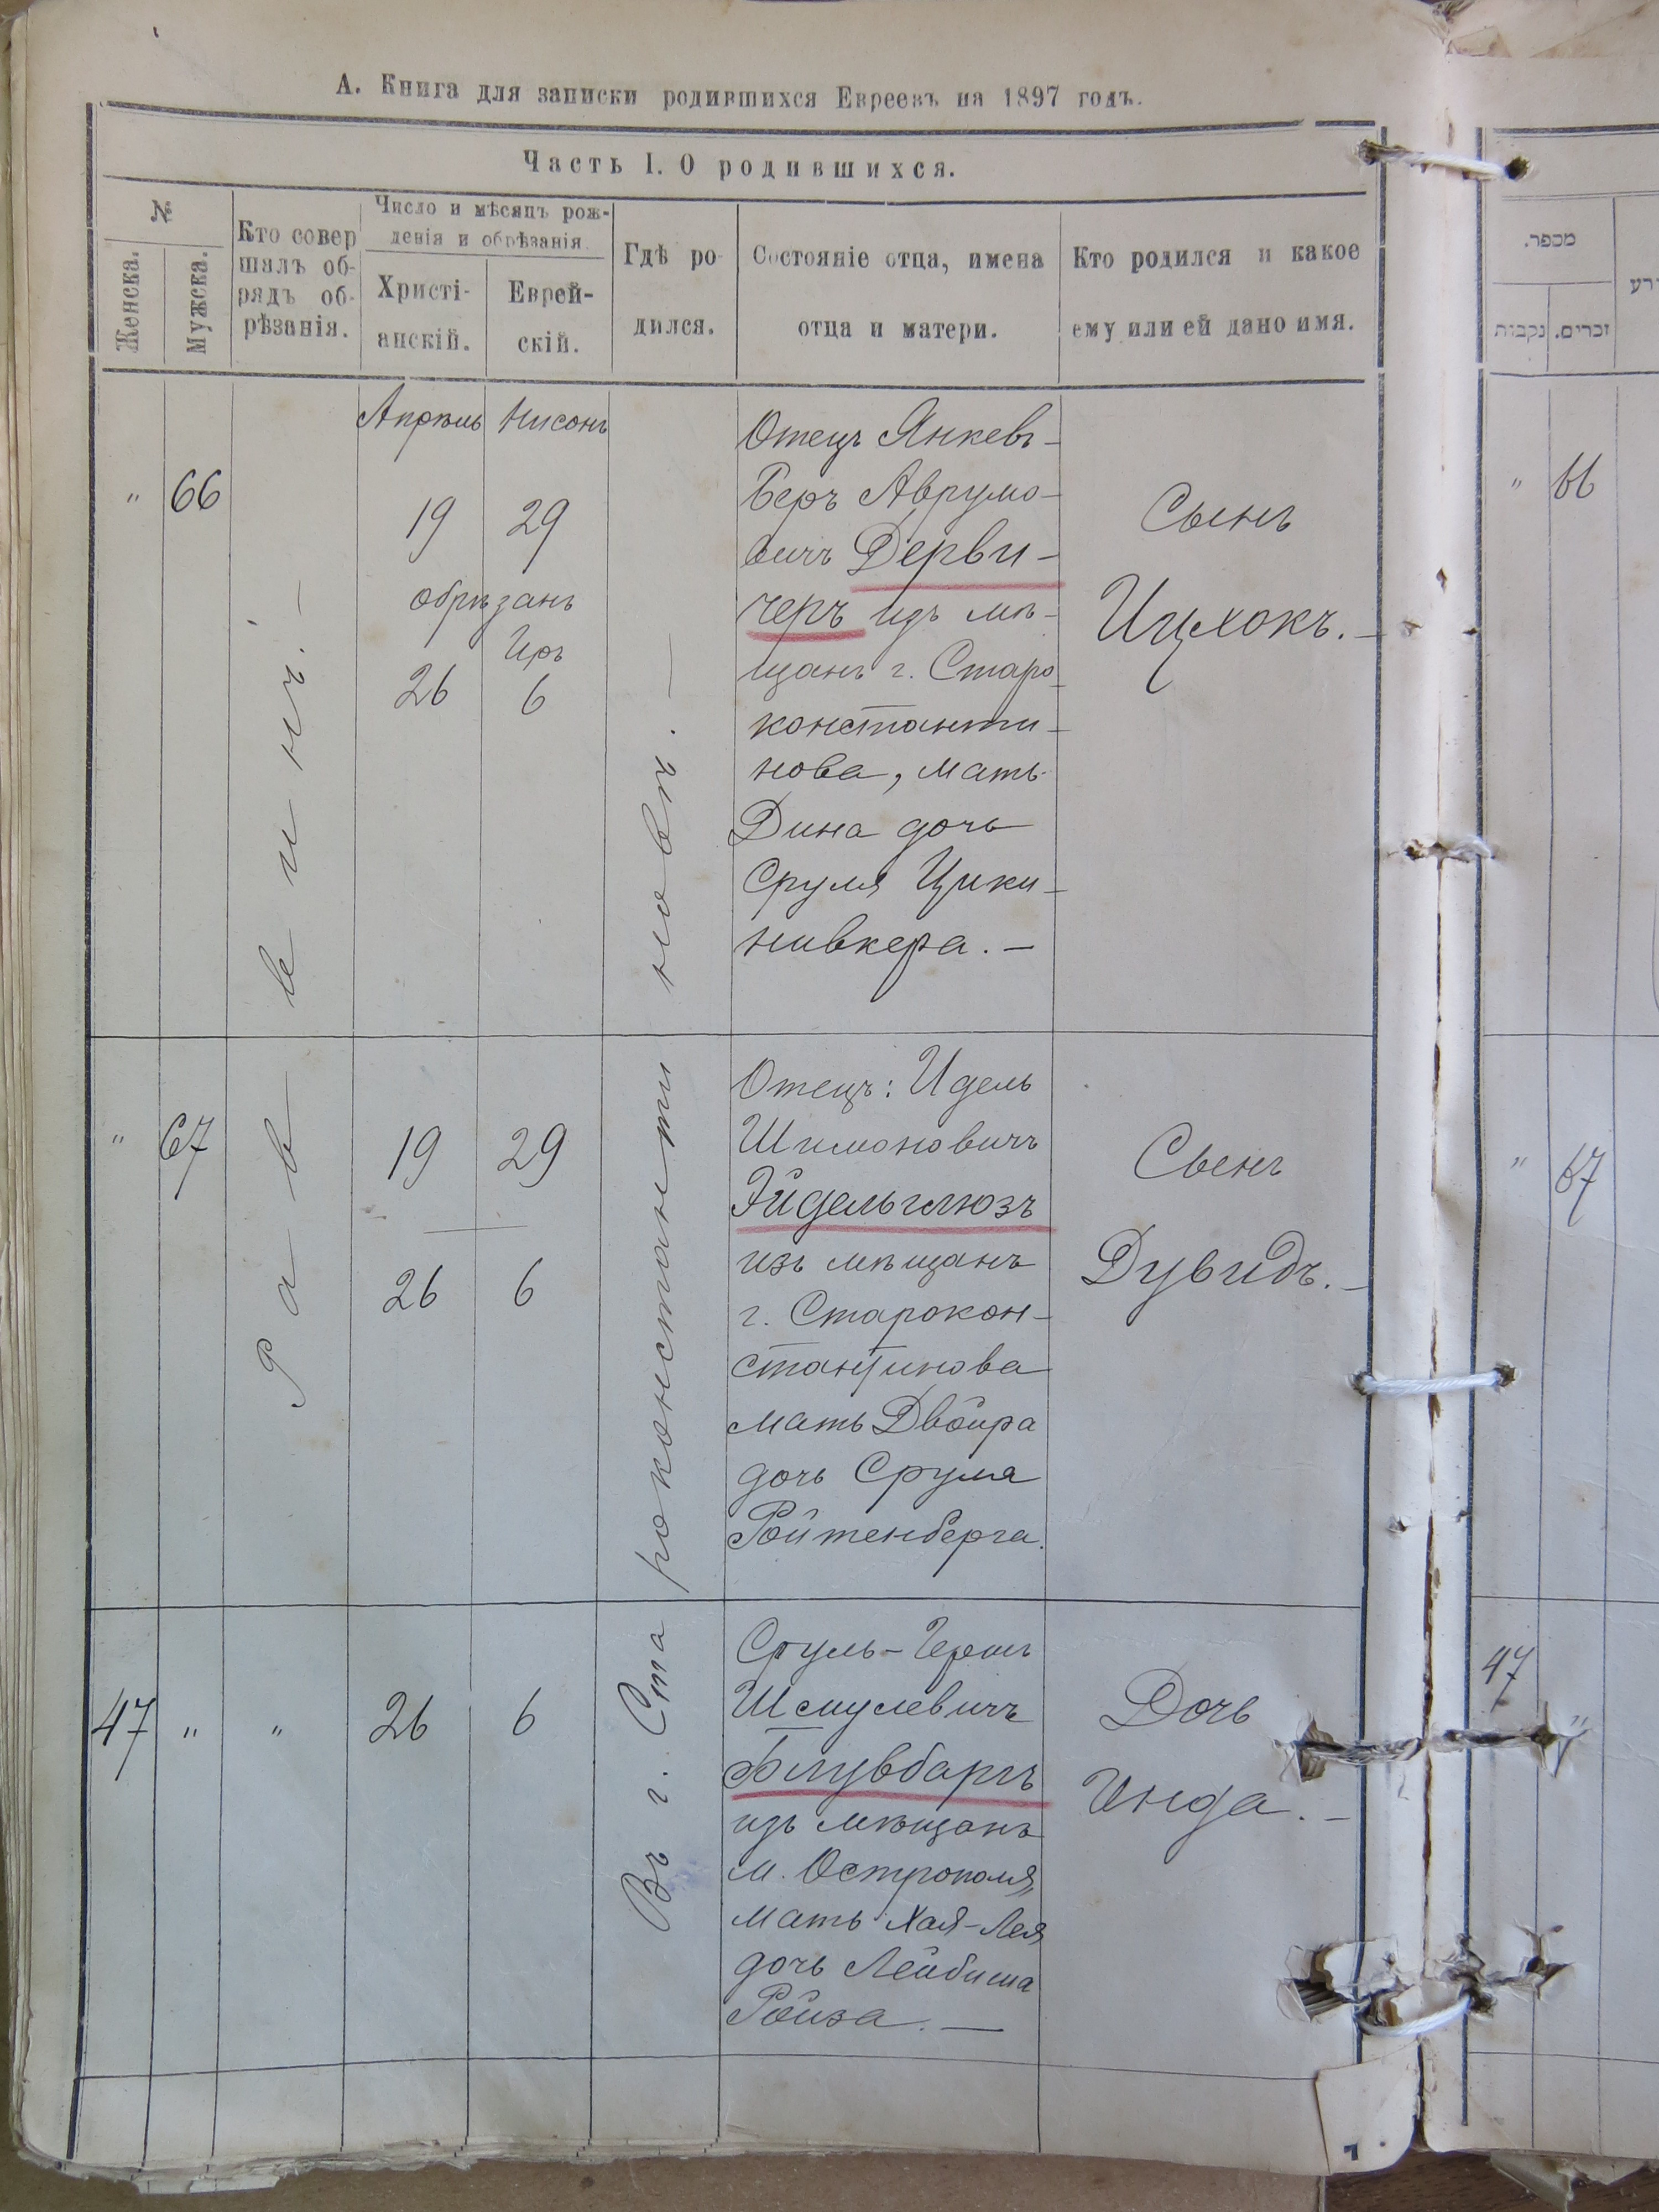 А. Книга для записки родившихся Евреевъ на 1897 годъ.
Часть I. О родившихся.
№
Женска.
Мужска.
Кто совер
шалъ об-
рядъ об-
рѣзанія.
Число и мѣсяцъ рож-
денія и обрѣзанія.
Христі-
анскій.
Еврей-
скій.
Гдѣ ро-
дился.
Состояніе отца, имена
отца и матери.
Кто родился и какое
ему или ей дано имя.
Раввинъ. —
Въ г. Староконстантиновѣ. —
Апрѣль Нисонъ
" 66
19 29
обрѣзанъ
Иръ
26 6
Отецъ Янкевъ-
Беръ Аврумо-
вичъ Дерви-
черъ изъ мѣ-
щанъ г. Старо-
константи-
нова, мать
Дина дочь
Сруля Цики-
нивкера. —
Сынъ
Ицхокъ. —
" 67
19 29
26 6
Отецъ: Идель
Шимоновичъ
Эйдельглюзъ
изъ мѣщанъ
г. Старокон-
стантинова
мать Двойра
дочь Сруля
Ройтенберга.
Сынъ
Дувидъ. —
47 " " 26 6
Сруль-Гершъ
Шмулевичъ
Блувбаргъ
изъ мѣщанъ
м. Острополя,
мать Хая-Лея
дочь Лейбиша
Ройза. —
Дочь
Инда. —
מספר.
נקבות
זכרים.
" 66
" 67
47 "